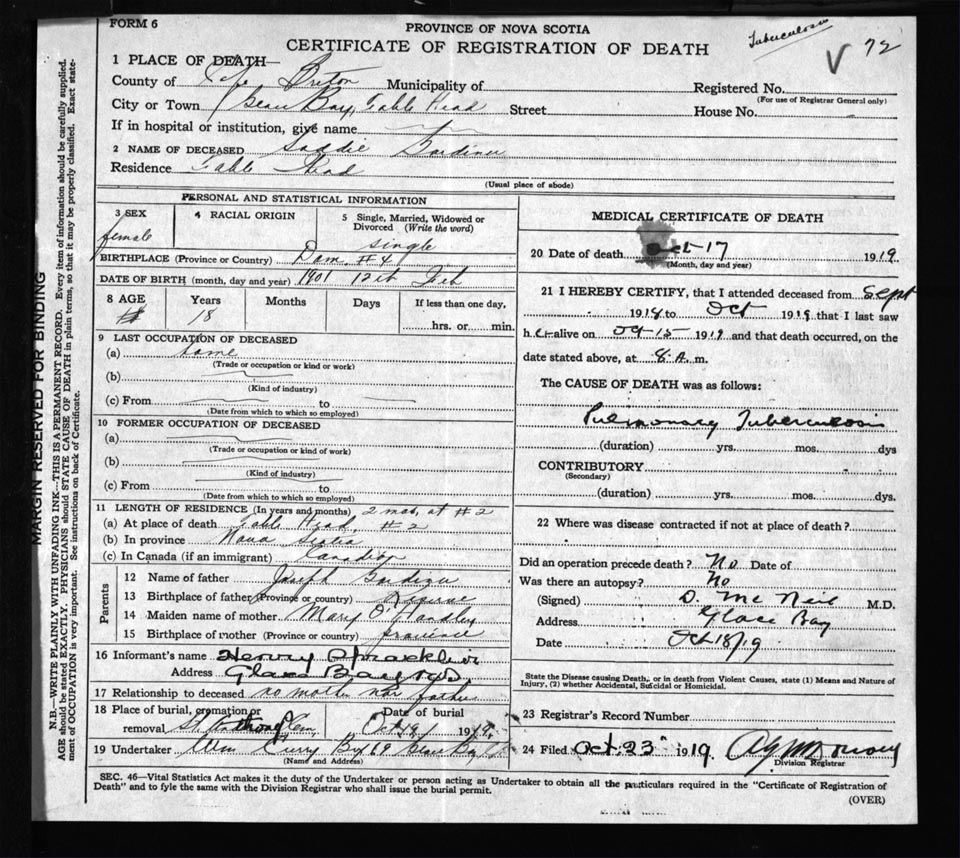 FORM 6
PROVINCE OF NOVA SCOTIA
Tuberculosis
72
CERTIFICATE OF REGISTRATION OF DEATH
1 PLACE OF DEATH—
County of Cape Breton Municipality of
Registered No.
(For use of Registrar General only)
City or Town Glace Bay, Table Head Street
House No.
If in hospital or institution, give name
2 NAME OF DECEASED Saddie Gardiner
Residence Table Head
(Usual place of abode)
PERSONAL AND STATISTICAL INFORMATION
3 SEX
female
4 RACIAL ORIGIN
5 Single, Married, Widowed or
Divorced (Write the word)
single
BIRTHPLACE (Province or Country) Dom. #4
DATE OF BIRTH (month, day and year) 1901 12th Feb
8 AGE
Years
18
Months
Days
If less than one day,
hrs. or min.
9 LAST OCCUPATION OF DECEASED
(a)
(Trade or occupation or kind or work)
(b)
(Kind of industry)
(c) From to
(Date from which to which so employed)
10 FORMER OCCUPATION OF DECEASED
(a)
(Trade or occupation or kind of work)
(b)
(Kind of industry)
(c) From to
(Date from which to which so employed)
11 LENGTH OF RESIDENCE (In years and months) 2 mos, at #2
(a) At place of death Table Head, #2
(b) In province Nova Scotia
(c) In Canada (if an immigrant) Canadian
Parents
12 Name of father Joseph Gardiner
13 Birthplace of father (Province or country) Reserve
14 Maiden name of mother Mary O'Handley
15 Birthplace of mother (Province or country) province
16 Informant's name Henry
Address Glace Bay
17 Relationship to deceased no mother nor father
18 Place of burial, cremation or
removal St Anthony Cem,
Date of burial
Oct 19, 1919
19 Undertaker Curry Box 69 Glace Bay
(Name and Address)
MEDICAL CERTIFICATE OF DEATH
20 Date of death Oct-17 1919
(Month, day and year)
21 I HEREBY CERTIFY, that I attended deceased from Sept
1918 to Oct 1919 that I last saw
her alive on Oct-15 1919 and that death occurred, on the
date stated above, at 8 A. m.
The CAUSE OF DEATH was as follows:
Pulmonary Tuberculosis
(duration) yrs. mos. dys
CONTRIBUTORY
(Secondary)
(duration) yrs. mos. dys.
22 Where was disease contracted if not at place of death?
Did an operation precede death? No Date of
Was there an autopsy? No
(Signed) D. McNeil M.D.
Address Glace Bay
Date Oct 18/19
State the Disease causing Death, or in death from Violent Causes, state (1) Means and Nature of
Injury, (2) whether Accidental, Suicidal or Homicidal.
23 Registrar's Record Number
24 Filed Oct. 23 1919
Division Registrar
SEC. 46—Vital Statistics Act makes it the duty of the Undertaker or person acting as Undertaker to obtain all the particulars required in the "Certificate of Registration of
Death" and to fyle the same with the Division Registrar who shall issue the burial permit.
(OVER)
MARGIN RESERVED FOR BINDING
N.B.—WRITE PLAINLY WITH UNFADING INK—THIS IS A PERMANENT RECORD. Every item of information should be carefully supplied.
AGE should be stated EXACTLY. PHYSICIANS should STATE CAUSE OF DEATH in plain terms, so that it may be properly classified. Exact state-
ment of OCCUPATION is very important. See instructions on back of Certificate.